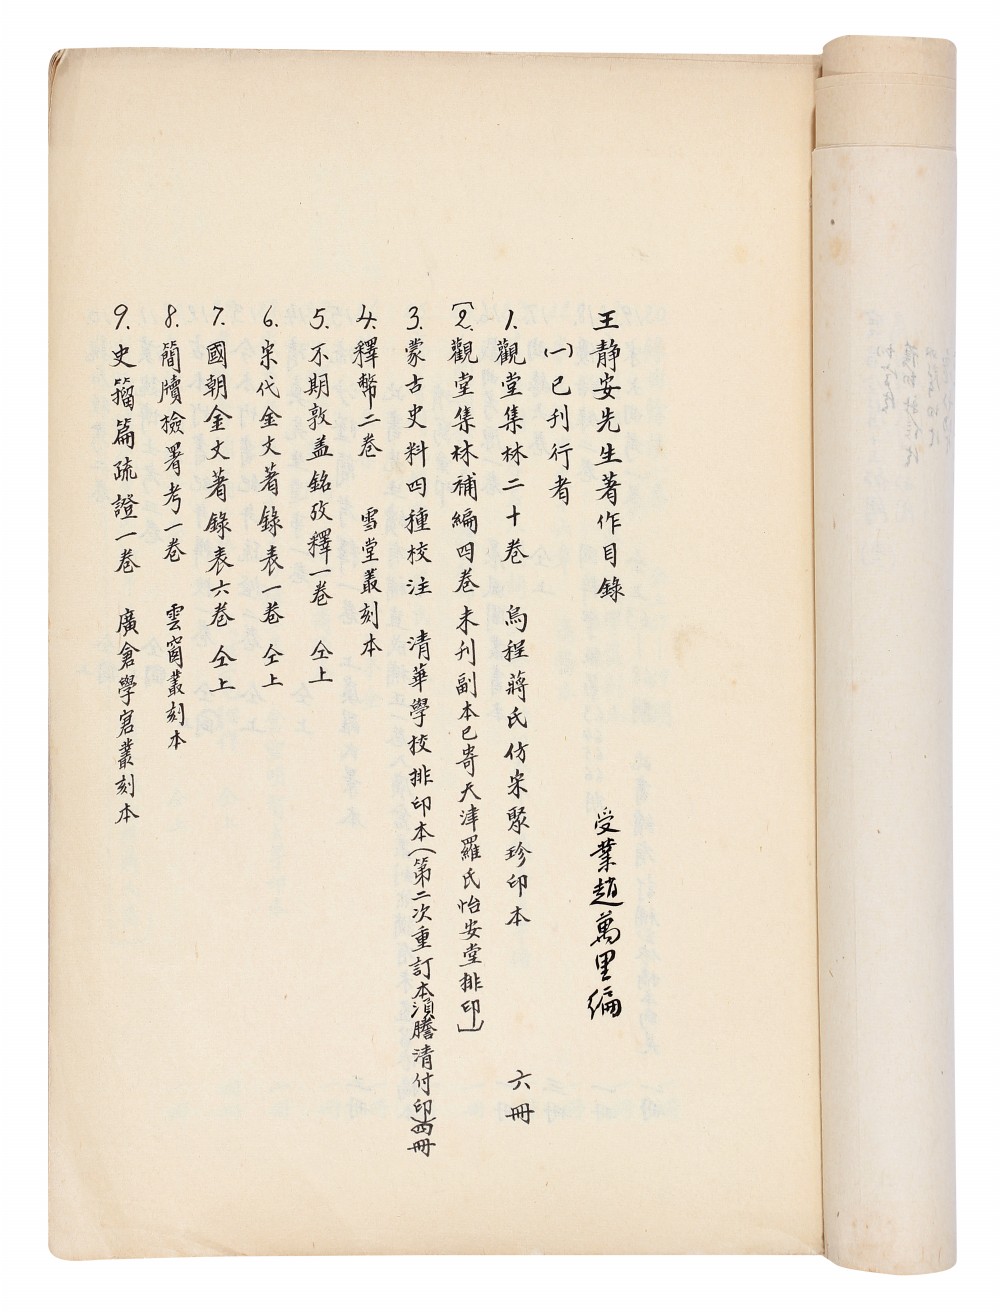 王靜安先生著作目錄
受業趙萬里編
(一)已刊行者
1.觀堂集林二十卷 烏程蔣氏仿宋聚珍印本 六冊
〔2.觀堂集林補編四卷 未刊副本已寄天津羅氏怡安堂排印〕
3.蒙古史料四種校注 清華學校排印本(第二次重訂本須謄清付印)四冊
4.釋幣二卷 雪堂叢刻本
5.不期敦蓋銘攷釋一卷 仝上
6.宋代金文著錄表一卷 仝上
7.國朝金文著錄表六卷 仝上
8.簡牘檢署考一卷 雲窗叢刻本
9.史籀篇疏證一卷 廣倉學宭叢刻本